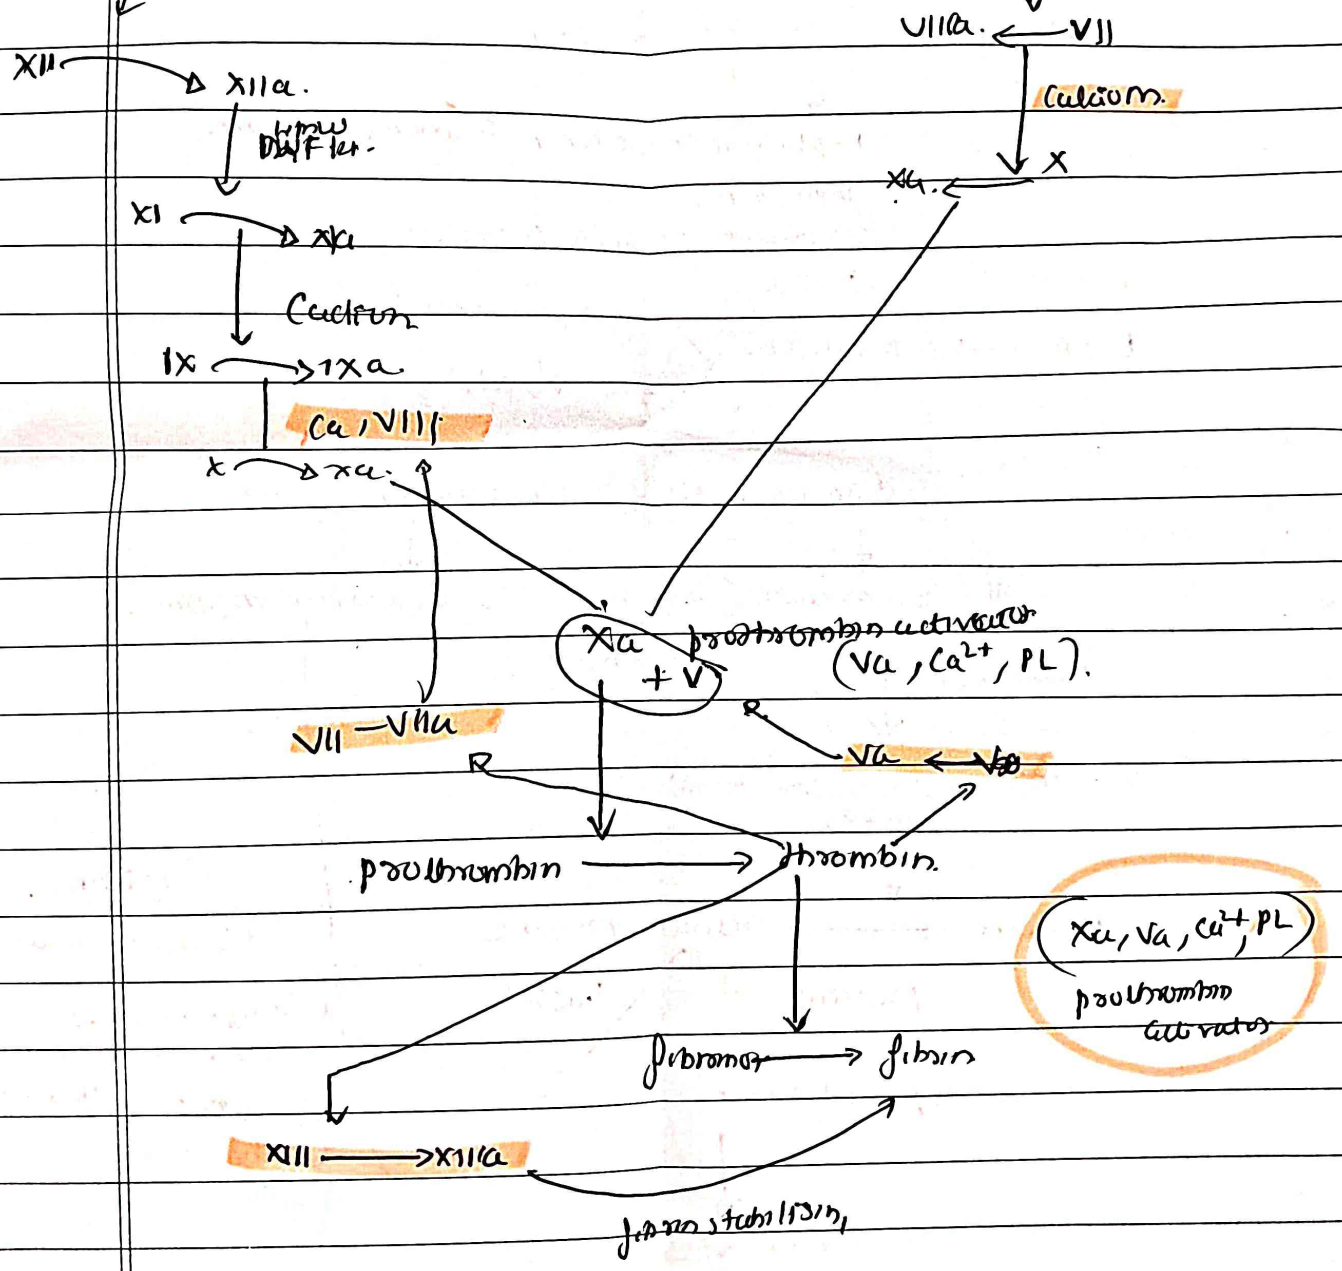 VIIa. ← VII
XII → XIIa.
Calcium.
HMW
X
Xa.
XI → XIa
Calcium
IX → IXa
Ca, VIII
X → Xa.
Xa prothrombin activator
+ V (Va, Ca²⁺, PL).
VII — VIIa
Va ←
prothrombin → thrombin.
(Xa, Va, Ca²⁺, PL)
prothrombin
activator
fibrinogen → fibrin
XIII → XIIIa
fibrin stabilising